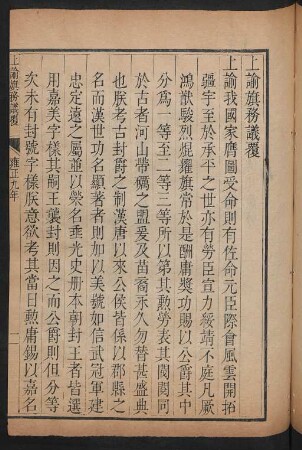 上諭旗務議覆
上諭我國家膺圖受命則有佐命元臣際會風雲開拓
疆宇至於承平之世亦有勞臣宣力綏靖不庭凡厥
鴻猷駿烈焜耀旗常於是酬庸獎功賜以公爵其中
分爲一等至二等三等所以第其勲勞表其閥閱同
於古者河山帶礪之盟爰及苗裔永久勿替甚盛典
也朕考古封爵之制漢唐以來公侯皆係以郡縣之
名而漢世功名顯著者則加以美號如信武冠軍建
忠定遠之屬並以榮名垂光史冊本朝封王者皆選
用嘉美字樣其嗣王襲封則因之而公爵則但分等
次未有封號字樣朕意欲考其當日勲庸錫以嘉名
上諭旗務議覆
雍正九年
一